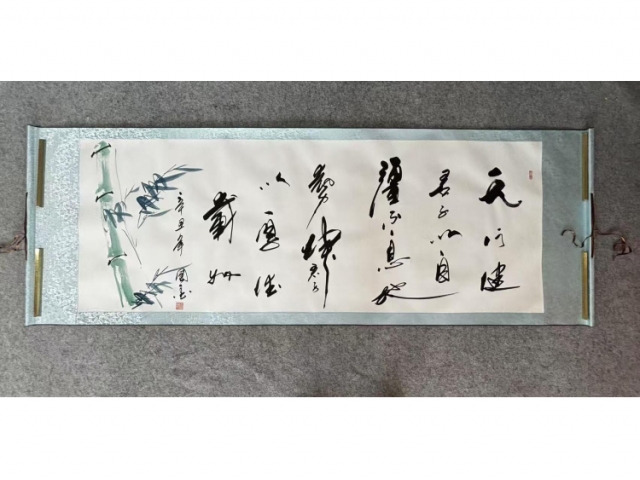 天行健
君子以自
彊不息地
勢坤君子
以厚德
載物
辛丑年